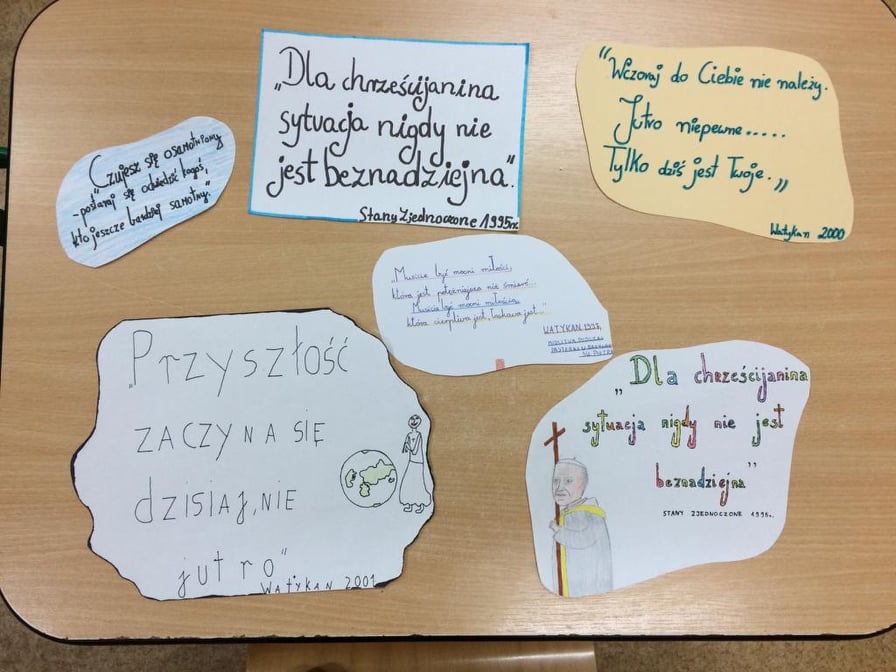 „Czujesz się osamotniony
-postaraj się odwiedzić kogoś,
kto jeszcze bardziej samotny."
„Dla chrześcijanina
sytuacja nigdy nie
jest beznadziejna".
Stany Zjednoczone 1995r.
"Wczoraj do Ciebie nie należy.
Jutro niepewne.....
Tylko dziś jest Twoje.„
Watykan 2000
„Musicie być mocni miłością,
która jest potężniejsza niż śmierć...
Musicie być mocni miłością,
która cierpliwa jest, łaskawa jest..."
WATYKAN 1995,
SW. PIOTRA
„Przyszłość
ZACZYNA SIĘ
dzisiaj, NIE
jutro"
Watykan 2001
„Dla chrześcijanina
sytuacja nigdy nie jest
beznadziejna"
STANY ZJEDNOCZONE 1995r.